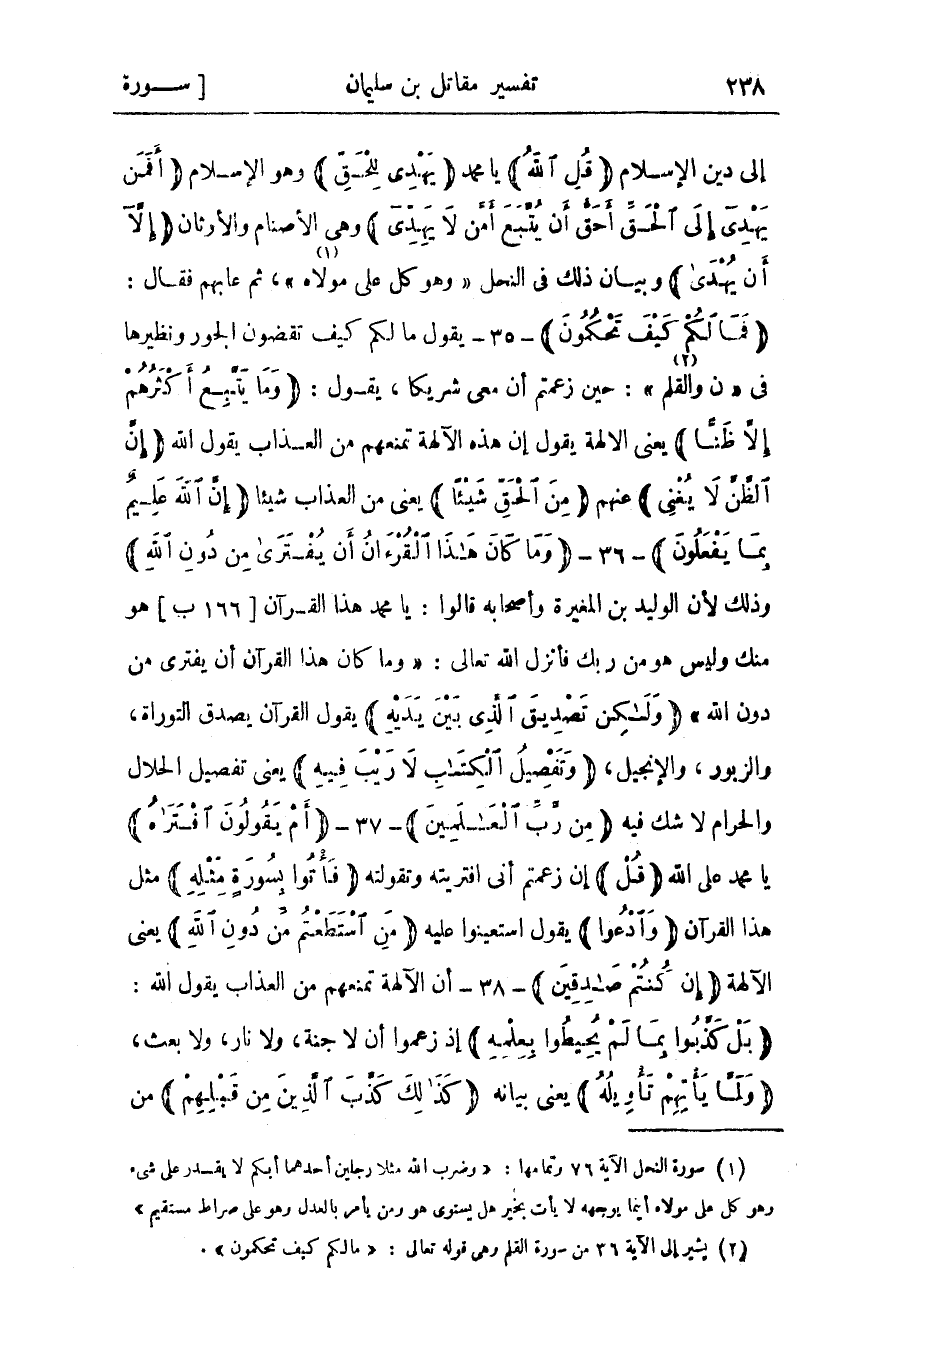 ٢٣٨ تفسير مقاتل بن سليمان [ ســـورة
إلى دين الإسـلام ﴿ قُلِ ٱللَّهُ ﴾ يا محمد ﴿ يَهْدِى لِلْحَقِّ ﴾ وهو الإسـلام ﴿ أَفَمَن
يَهْدِىٓ إِلَى ٱلْحَقِّ أَحَقُّ أَن يُتَّبَعَ أَمَّن لَا يَهِدِّىٓ ﴾ وهى الأصنام والأوثان ﴿ إِلَّآ
أَن يُهْدَىٰ ﴾ وبيـان ذلك فى النحل « وهو كل على مولاه »(١)، ثم عابهم فقـال :
﴿ فَمَا لَكُمْ كَيْفَ تَحْكُمُونَ ﴾ - ٣٥ - يقول ما لكم كيف تقضون الجور ونظيرها
فى « ن والقلم »(٢) : حين زعمتم أن معى شريكا ، يقـول : ﴿ وَمَا يَتَّبِعُ أَكْثَرُهُمْ
إِلَّا ظَنًّا ﴾ يعنى الالهة يقول إن هذه الآلهة تمنعهم من العـذاب يقول الله ﴿ إِنَّ
ٱلظَّنَّ لَا يُغْنِى ﴾ عنهم ﴿ مِنَ ٱلْحَقِّ شَيْئًا ﴾ يعنى من العذاب شيئا ﴿ إِنَّ ٱللَّهَ عَلِـيمٌ
بِمَـا يَفْعَلُونَ ﴾ - ٣٦ - ﴿ وَمَا كَانَ هَـٰذَا ٱلْقُرْءَانُ أَن يُفْـتَرَىٰ مِن دُونِ ٱللَّهِ ﴾
وذلك لأن الوليد بن المغيرة وأصحابه قالوا : يا محمد هذا القـرآن [ ١٦٦ ب ] هو
منك وليس هو من ربك فأنزل الله تعالى : « وما كان هذا القرآن أن يفترى من
دون الله » ﴿ وَلَـٰكِن تَصْدِيقَ ٱلَّذِى بَيْنَ يَدَيْهِ ﴾ يقول القرآن يصدق التوراة،
والزبور ، والإنجيل، ﴿ وَتَفْصِيلُ ٱلْكِتَـٰبِ لَا رَيْبَ فِـيهِ ﴾ يعنى تفصيل الحلال
والحرام لا شك فيه ﴿ مِن رَّبِّ ٱلْعَـٰـلَمِينَ ﴾ - ٣٧ - ﴿ أَمْ يَقُولُونَ ٱفْتَرَاهُ ﴾
يا محمد على الله ﴿ قُلْ ﴾ إن زعمتم أنى افتريته وتقولته ﴿ فَأْتُوا بِسُورَةٍ مِّثْلِهِ ﴾ مثل
هذا القرآن ﴿ وَٱدْعُوا ﴾ يقول استعينوا عليه ﴿ مَنِ ٱسْتَطَعْتُم مِّن دُونِ ٱللَّهِ ﴾ يعنى
الآلهة ﴿ إِن كُنتُمْ صَـٰدِقِينَ ﴾ - ٣٨ - أن الآلهة تمنعهم من العذاب يقول الله :
﴿ بَلْ كَذَّبُوا بِمَـا لَمْ يُحِيطُوا بِعِلْمِهِ ﴾ إذ زعموا أن لا جنة، ولا نار، ولا بعث،
﴿ وَلَمَّـا يَأْتِهِمْ تَأْوِيلُهُ ﴾ يعنى بيانه ﴿ كَذَٰلِكَ كَذَّبَ ٱلَّذِينَ مِن قَبْلِهِمْ ﴾ من
(١) سورة النحل الآية ٧٦ وتمامها : « وضرب الله مثلا رجلين أحدهما أبكم لا يقـدر على شىء
وهو كل على مولاه أينما يوجهه لا يأت بخير هل يستوى هو ومن يأمر بالعدل وهو على صراط مستقيم »
(٢) يشير إلى الآية ٣٦ من سورة القلم وهى قوله تعالى : « مالكم كيف تحكمون » .